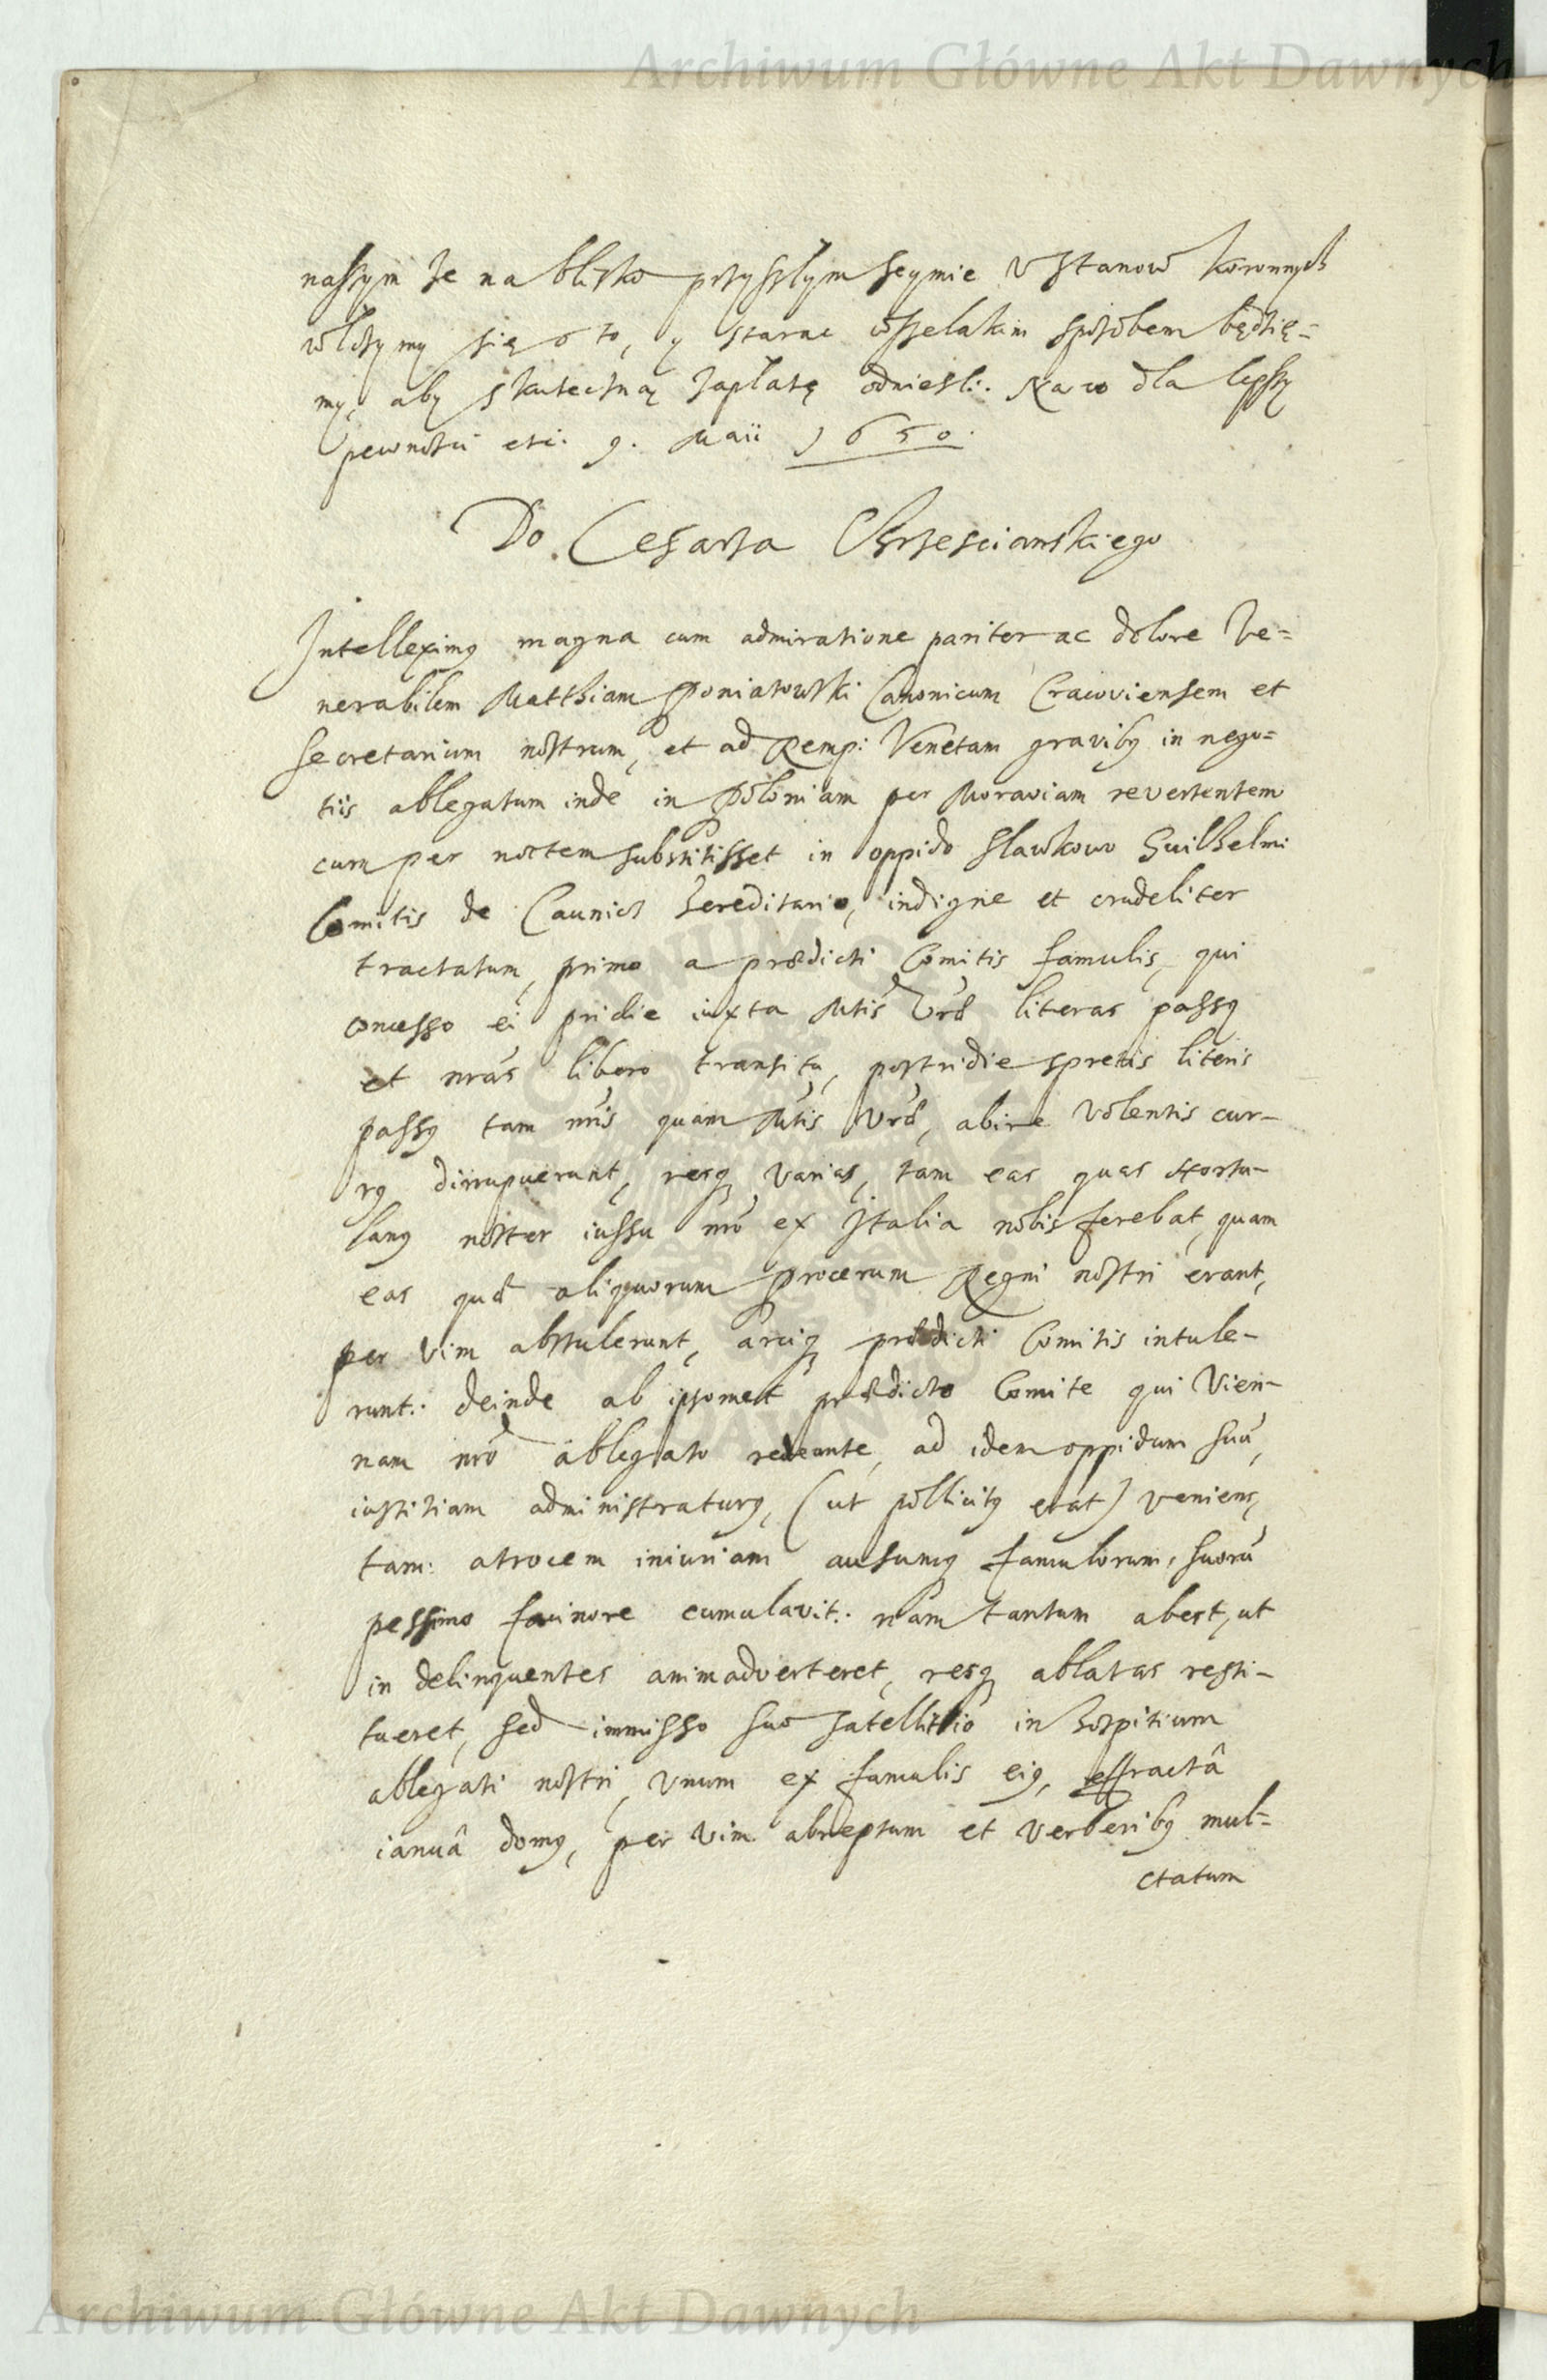 Archiwum Główne Akt Dawnych
naszym że na blisko przyszłym seymie v stanow koronnych
włożymy się o to, y starac wszelakim sposobem będzię=
my, aby skuteczną zapłatę odniesli. Na co dla lepszy
pewności etc: 9. Maii 1650.
Do Cesarza Chrzescianskiego
Intelleximꝰ magna cum admiratione pariter ac dolore Ve=
nerabilem Matthiam Poniatowski Canonicum Cracoviensem et
Secretarium nostrum, et ad Remp: Venetam gravibꝰ in nego=
tiis ablegatum inde in Poloniam per Moraviam revertentem
cum per noctem substitisset in oppido Slawkowo Guilhelmi
Comitis de Caunicz hereditario, indigne et crudeliter
tractatum, primo a prædicti Comitis famulis, qui
concesso ei pridie iuxta Mtis Vræ literas passꝰ
et nras libero transitu, postridie spretis literis
passꝰ tam nris quam Mtis Vræ, abire volentis cur-
rꝰ dirrupuerunt, resqꝫ varias, tam eas quas Hortu-
lanꝰ noster iussu nro ex Italia nobis ferebat, quam
eas quæ aliquorum Procerum Regni nostri erant,
per vim abstulerunt, arciqꝫ prædicti Comitis intule-
runt: deinde ab ipsomet prædicto Comite qui Vien-
nam nro ablegato redeunte, ad idem oppidum suū,
iustitiam administraturꝰ, (ut pollicitꝰ erat) veniens,
tam: atrocem iniuriam ausumqꝫ famulorum suorū
pessimo facinore cumulavit: nam tantum abest, ut
in delinquentes animadverteret, resqꝫ ablatas resti-
tueret, sed immisso suo satellitio in hospitium
ablegati nostri, vnum ex famulis eiꝰ, effractâ
ianuâ domꝰ, per vim abreptum et verberibꝰ mul=
ctatum
Archiwum Główne Akt Dawnych